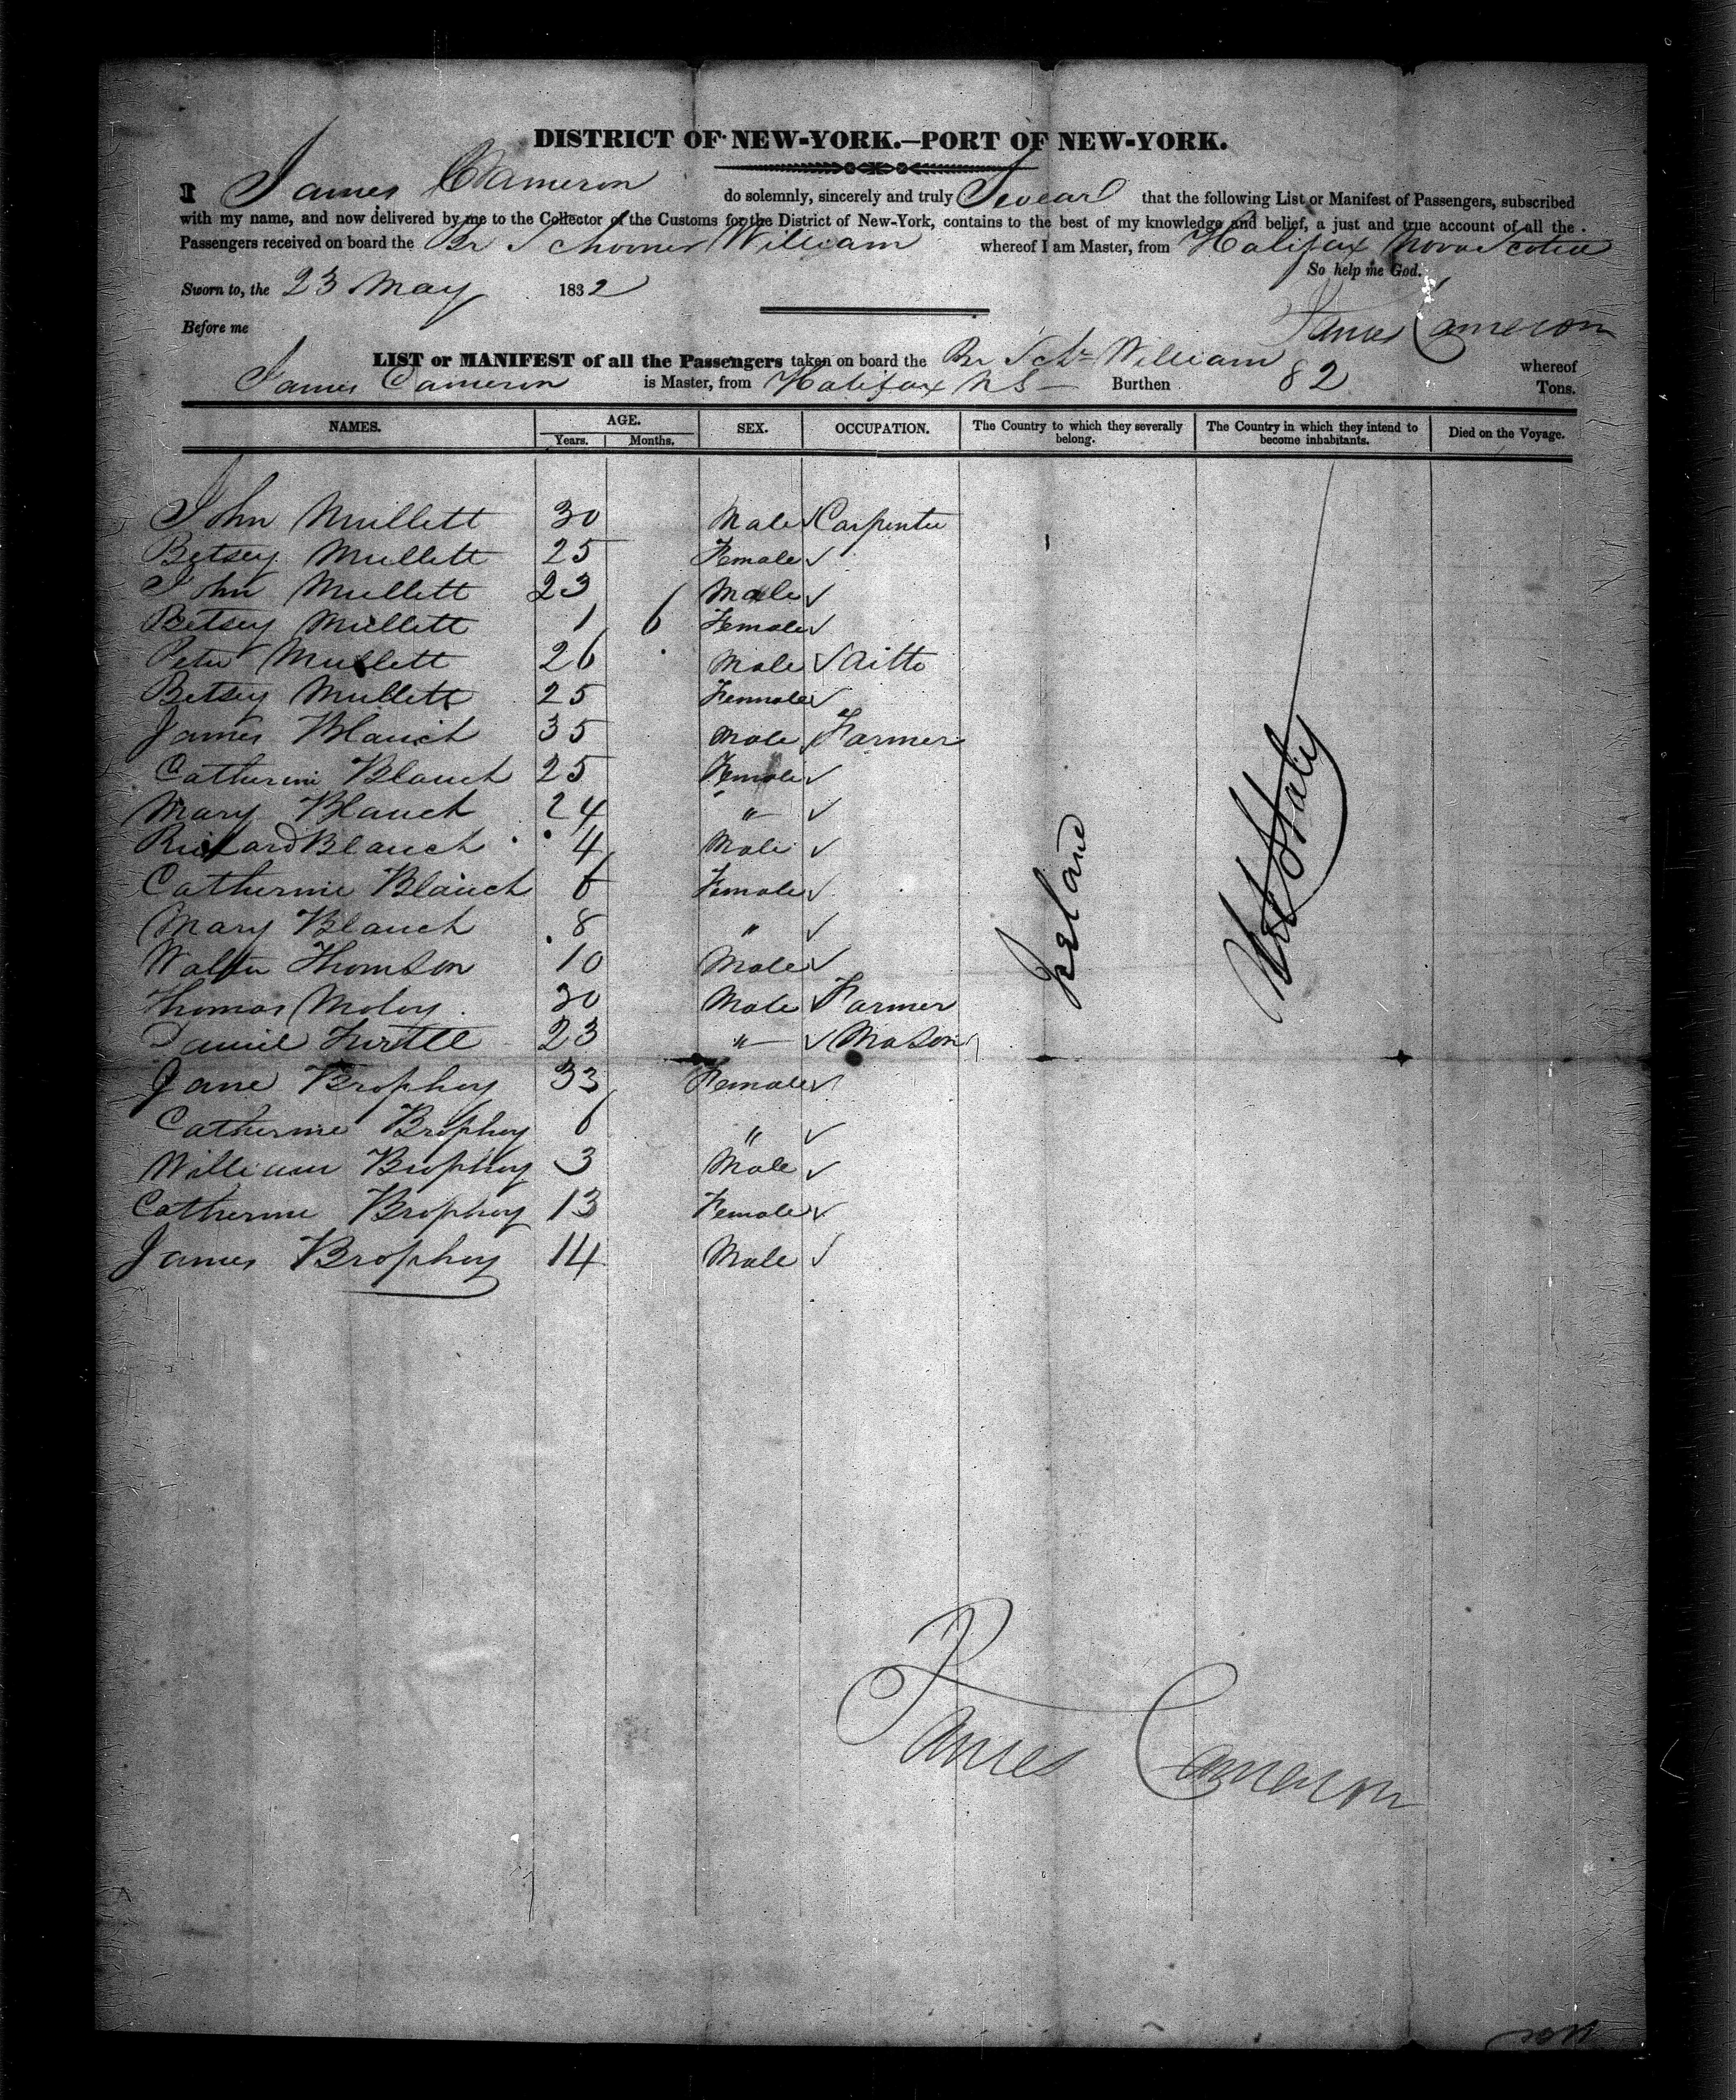 DISTRICT OF NEW-YORK.—PORT OF NEW-YORK.
I James Cameron do solemnly, sincerely and truly Swear that the following List or Manifest of Passengers, subscribed
with my name, and now delivered by me to the Collector of the Customs for the District of New-York, contains to the best of my knowledge and belief, a just and true account of all the
Passengers received on board the Br Schooner William whereof I am Master, from Halifax Nova Scotia
So help me God.
Sworn to, the 23 May 1832
James Cameron
Before me
LIST or MANIFEST of all the Passengers taken on board the Br Schr William whereof
James Cameron is Master, from Halifax NS — Burthen 82 Tons.
NAMES. AGE. SEX. OCCUPATION. The Country to which they severally belong. The Country in which they intend to become inhabitants. Died on the Voyage.
Years. Months.
John Mullett 30 Male Carpenter
Betsey Mullett 25 Female
John Mullett 23 Male
Betsey Mullett 1 6 Female
Peter Mullett 26 Male ditto
Betsey Mullett 25 Female
James Blanch 35 Male Farmer
Catherine Blanch 25 Female
Mary Blanch 24 "
Richard Blanch 4 Male
Catherine Blanch 6 Female
Mary Blanch 8 "
Walter Thomson 10 Male
Thomas Moloy 30 Male Farmer
Daniel Turtle 23 " Mason
Jane Brophey 33 Female
Catherine Brophey 6 "
William Brophey 3 Male
Catherine Brophey 13 Female
James Brophey 14 Male
Ireland
James Cameron